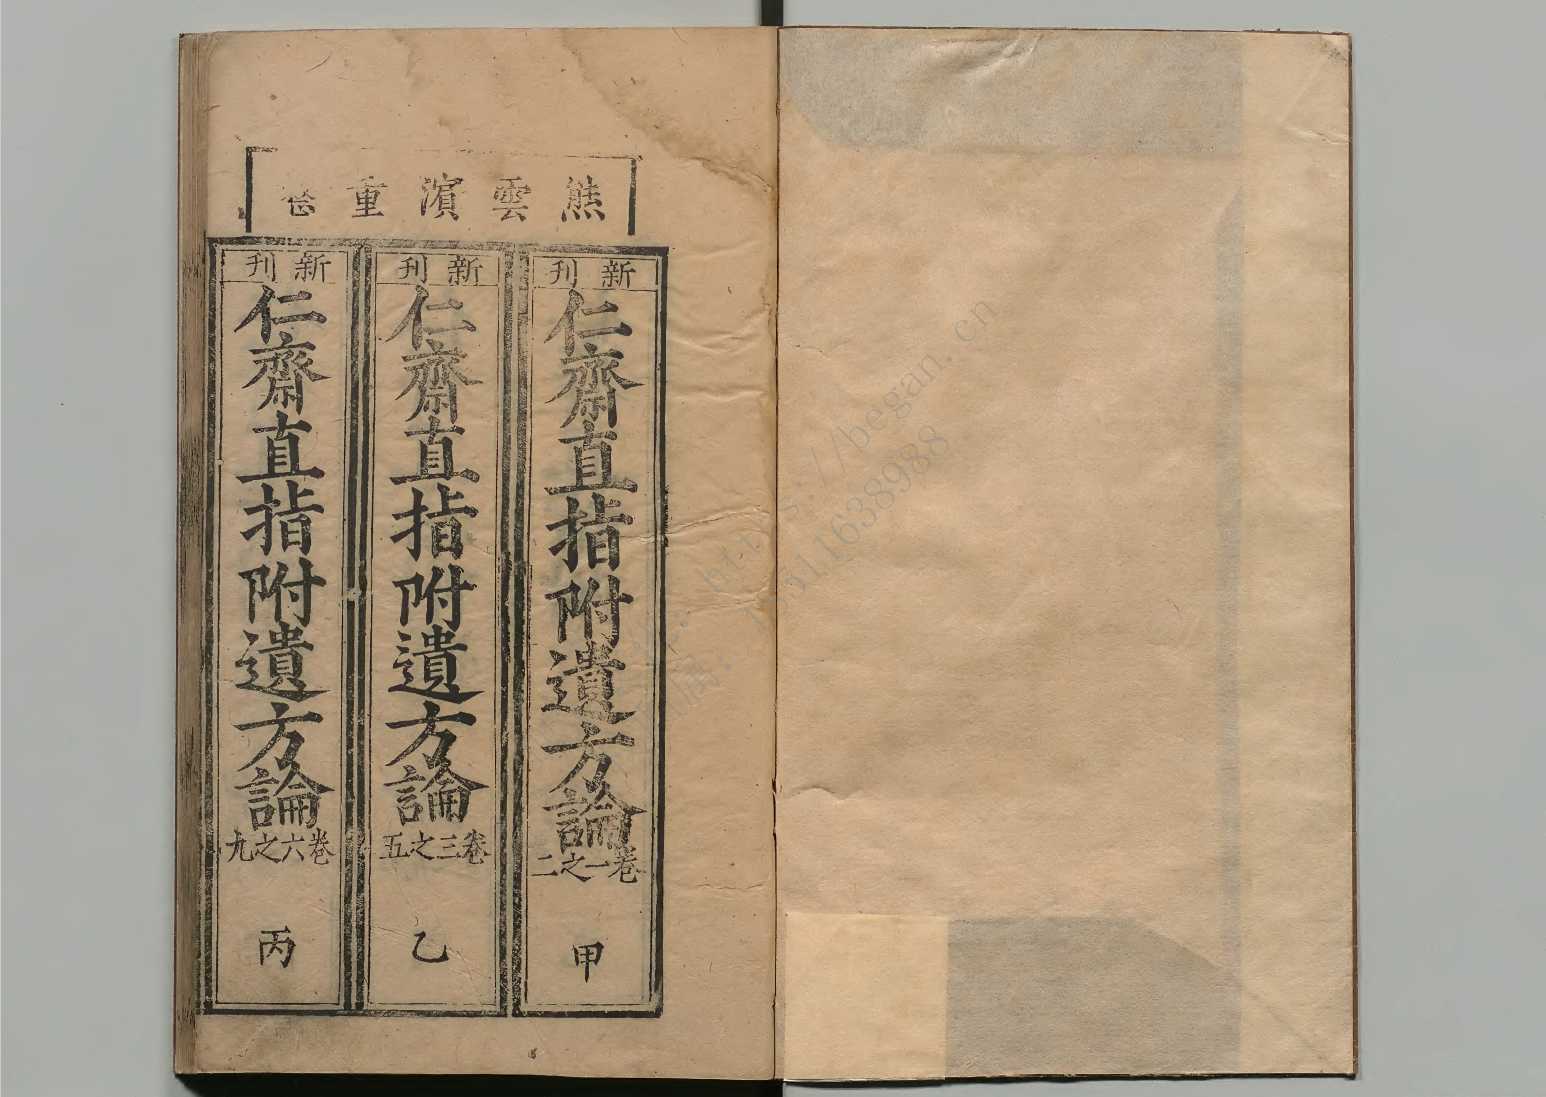 熊雲濱重
新刊
仁齋直指附遺方論
卷一之二
甲
新刊
仁齋直指附遺方論
卷三之五
乙
新刊
仁齋直指附遺方論
卷六之九
丙
https://began.cn